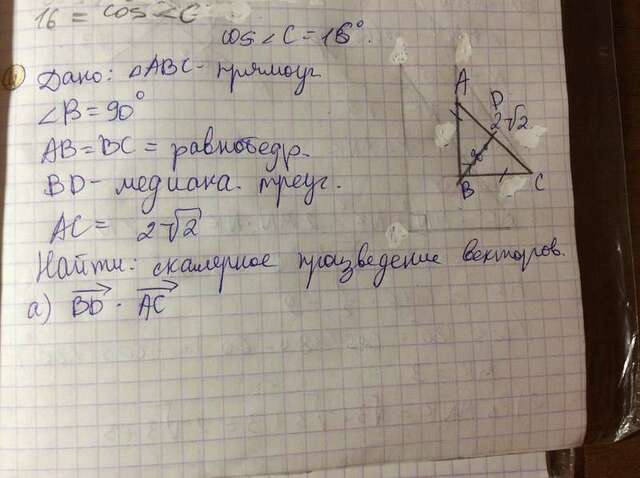 16 = cos∠C
cos∠C = 16°.
4 Дано: △ABC - прямоуг
∠B = 90°
AB = BC = равнобедр.
BD - медиана. треуг.
AC = 2√2
Найти: скалерное произведение векторов.
а) BD→ · AC→
A
D
2√2
B
C